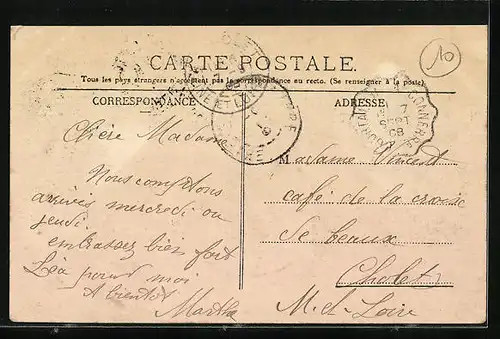 10
CARTE POSTALE.
Tous les pays étrangers n'acceptent pas la correspondance au recto. (Se renseigner à la poste)
CORRESPONDANCE
Chère Madame
Nous comptons
arrivés mercredi ou
jeudi
embrassez bien fort
Léa pour moi
A bientôt
Martha
ADRESSE
7
SEPT
08
Madame Vincent
café de la croix
de beaux
Cholet
M. et. Loire